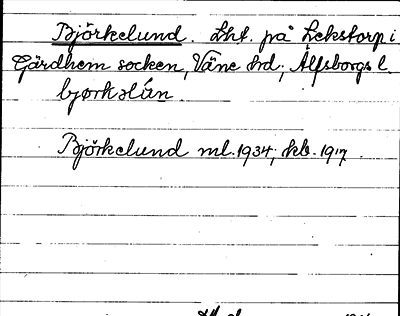 Björkelund. Lht. på Lekstorp i
Gärdhem socken, Väne hd; Älfsborgs l.
Björkelund ml. 1934; kb. 1917.